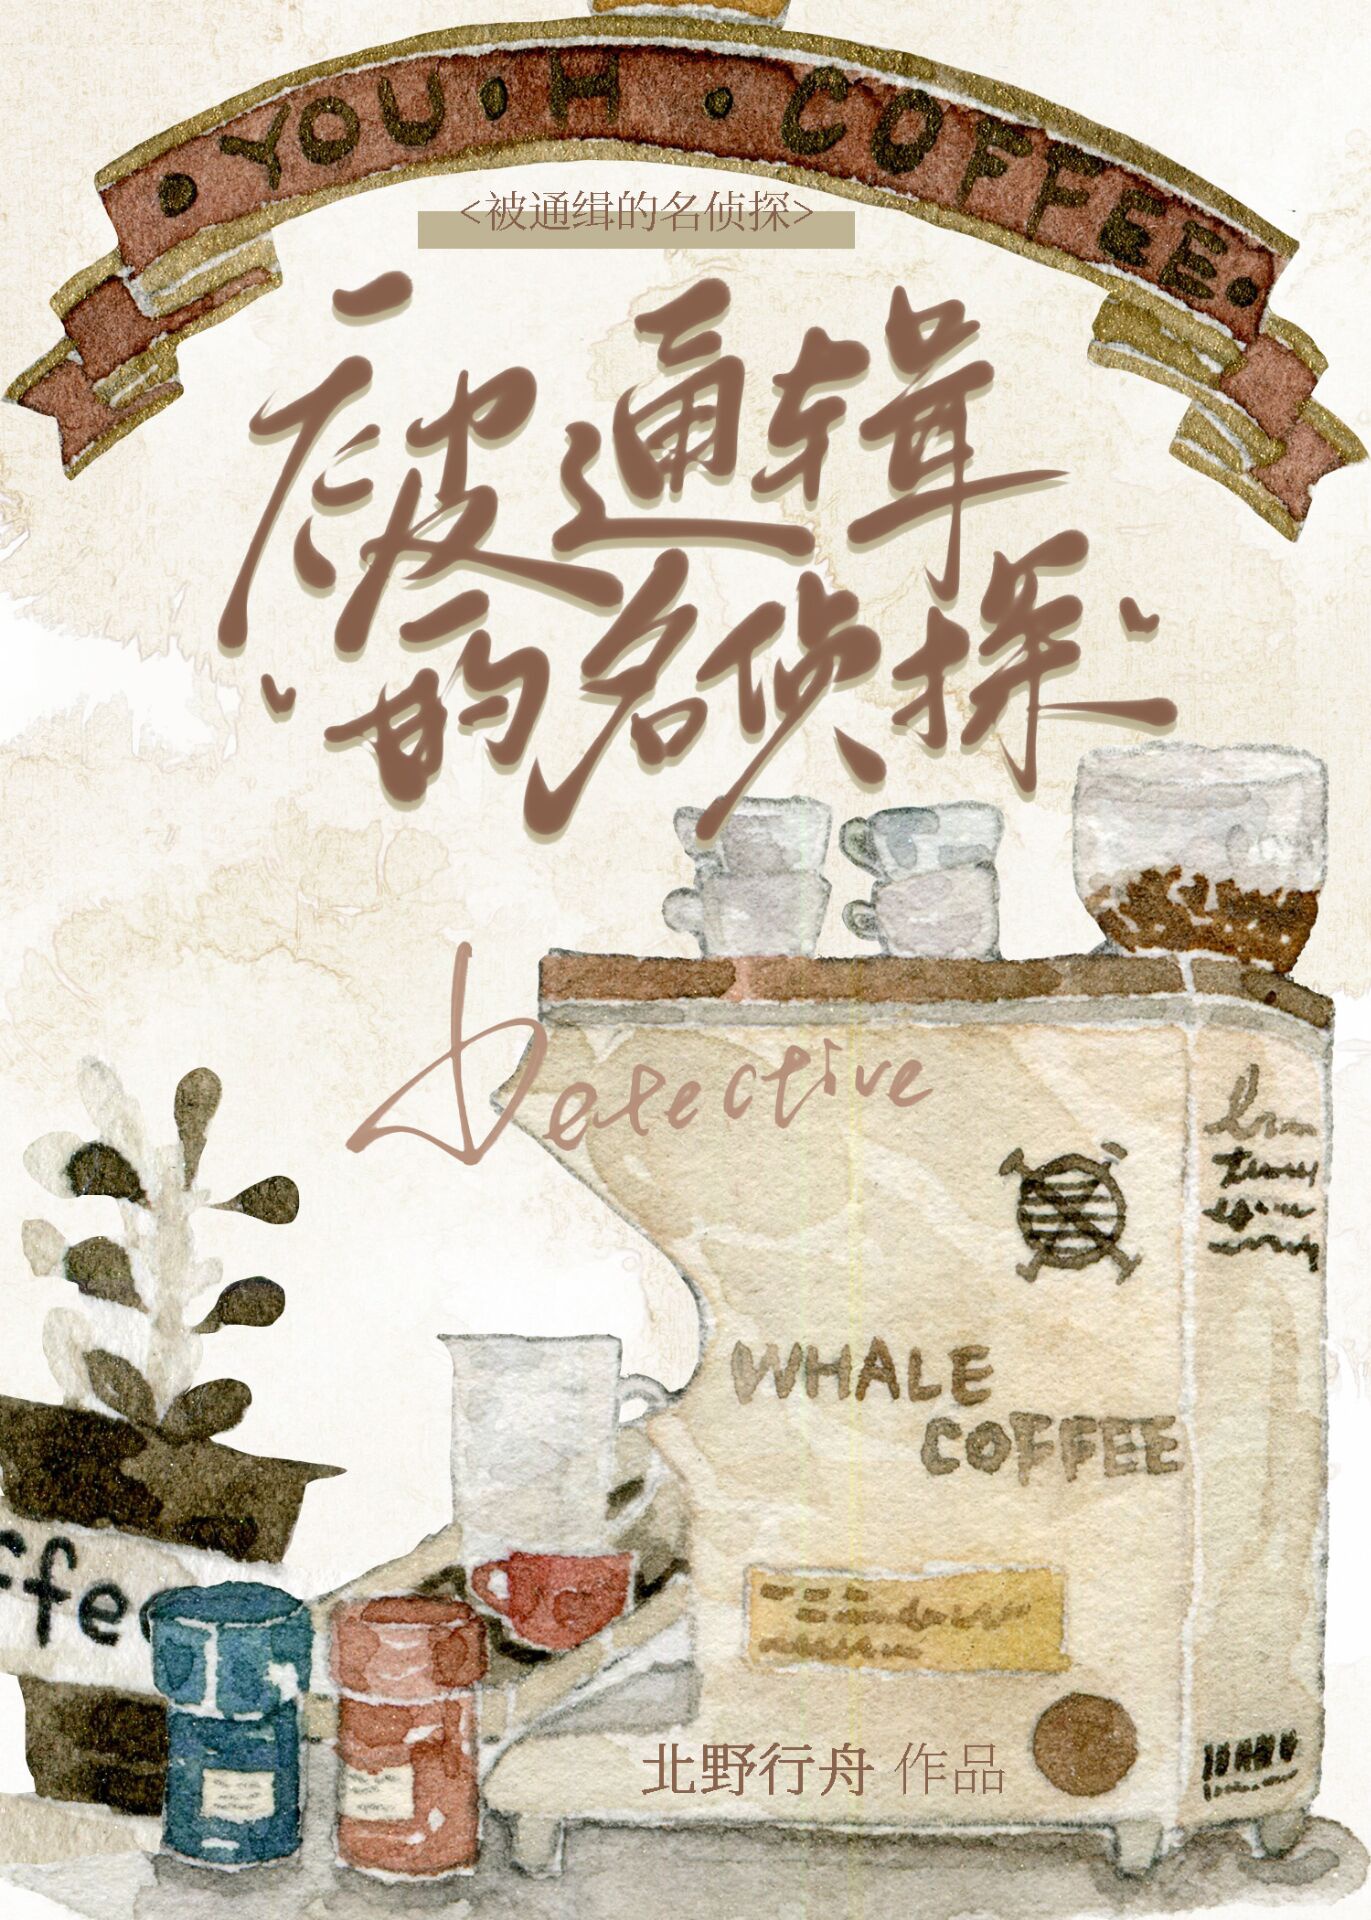 YOU·H·COFFEE
<被通缉的名侦探>
被通缉
的名侦探
Detective
WHALE
COFFEE
ffee
北野行舟 作品